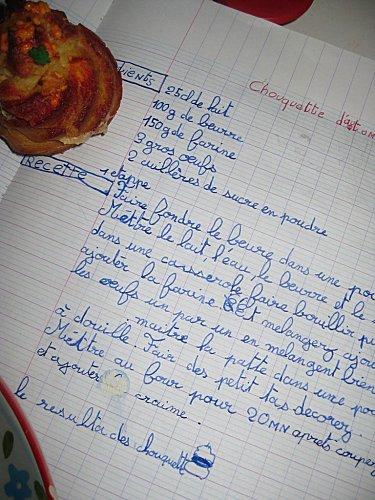 Chouquette d'automn
dients
25cl de lait
100g de beurre
150g de farine
3 gros œufs
2 cuillères de sucre en poudre
Recette 1 etappe
Faire fondre le beure dans une po
Mettre le lait, l'eau, le beurre et le s
dans une caisserole faire bouillir pu
ajoutér la farine. Et melangerz ajou
les œufs un par un en melangent bien
maitre la patte dans une po
à douille. Fair des petit tas decorez.
Mettre au four pour 20MN aprets couper
et ajouter craime.
le resulta des chouquett